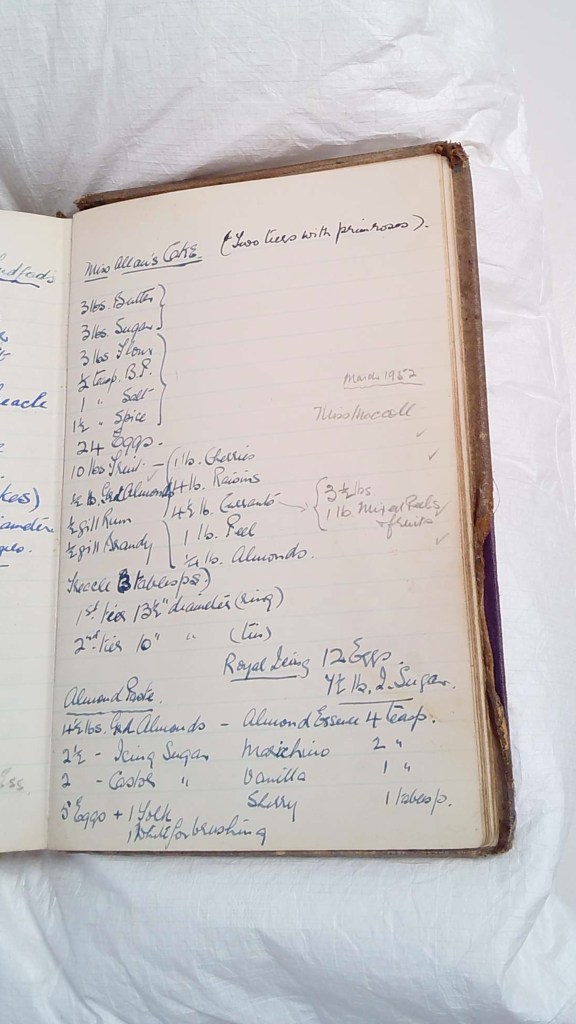 Miss Allan's Cake. (Two tiers with primroses).
3 lbs. Butter
3 lbs. Sugar
3 lbs Flour
½ teasp. B.P.
1 " Salt
1½ " Spice
24 Eggs.
10 lbs Fruit — 1 lb. Cherries
½ lb. Grd Almonds 4 lb. Raisins
½ gill Rum 4½ lb. Currants
½ gill Brandy 1 lb. Peel
¼ lb. Almonds.
March 1952
Miss Maccoll
3½ lbs
1 lb. Mixed Peels
+ fruits
Treacle 3 tablesps)
1st tier 13½" diameter (ring)
2nd tier 10" " (tin)
Royal Icing 12 Eggs.
lb. I. Sugar.
Almond Paste.
4½ lbs. Grd Almonds — Almond Essence 4 teasp.
2½ - Icing Sugar 2 "
2 - Castor " Vanilla 1 "
5 Eggs + 1 Yolk Sherry 1 tablesp.
1 White for brushing
eache
kes)
iameter
Ess.